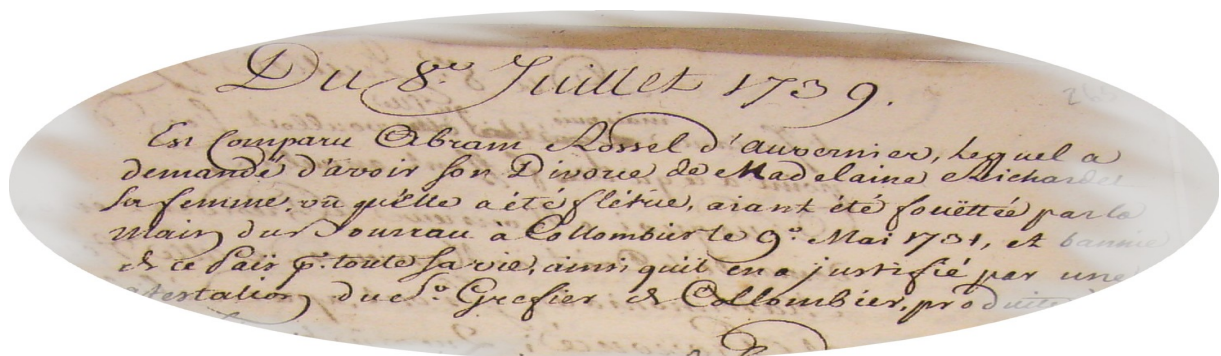 Du 8.e Juillet 1739.
Est Comparu Abram Rossel d'auvernier, lequel a
demandé d'avoir son Divorce de Madelaine Richardet
sa femme, vû qu'elle a été flétrie, aiant été fouëttée par la
main du Bourreau à Collombier le 9.e Mai 1731, et bannie
de ce Païs p.r toute sa vie, ainsi qu'il en a justifié par une
attestation du S.r Grefier de Collombier, produite